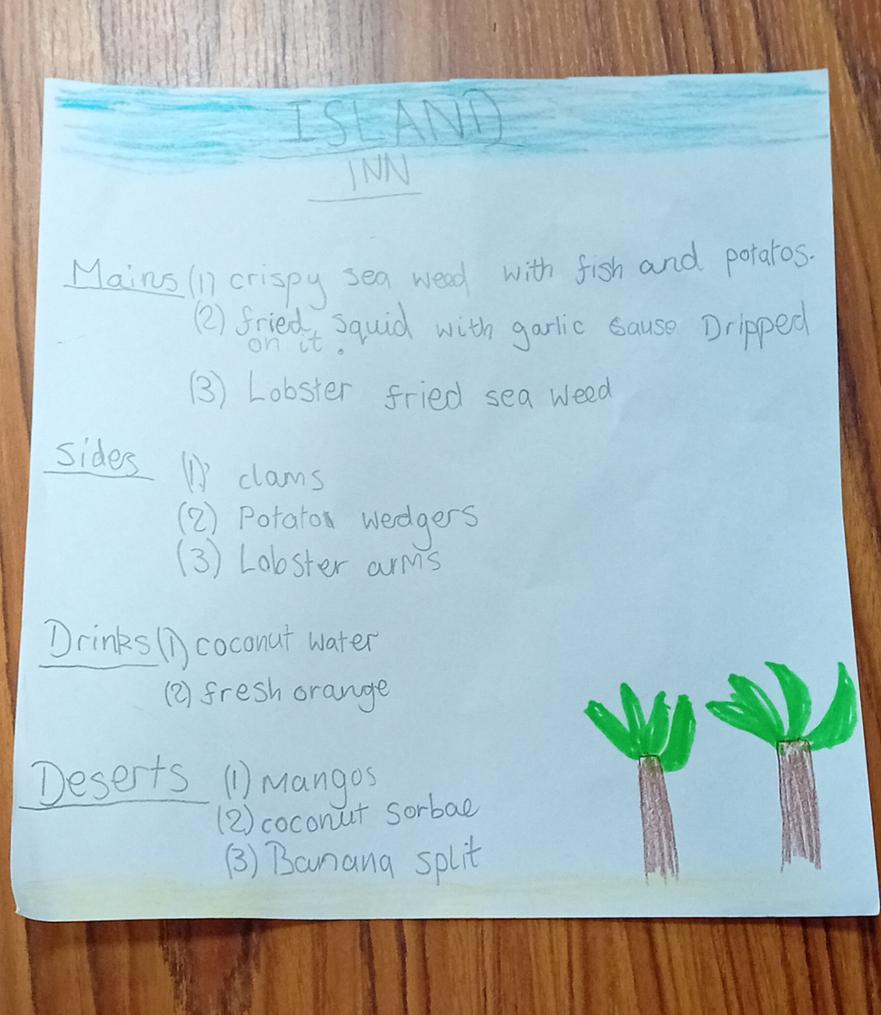 ISLAND
INN
Mains (1) crispy sea weed with fish and potatos.
(2) fried squid with garlic sause Dripped
on it.
(3) Lobster fried sea weed
Sides (1) clams
(2) Potatos wedgers
(3) Lobster arms
Drinks (1) coconut water
(2) fresh orange
Deserts (1) Mangos
(2) coconut sorbae
(3) Banana split